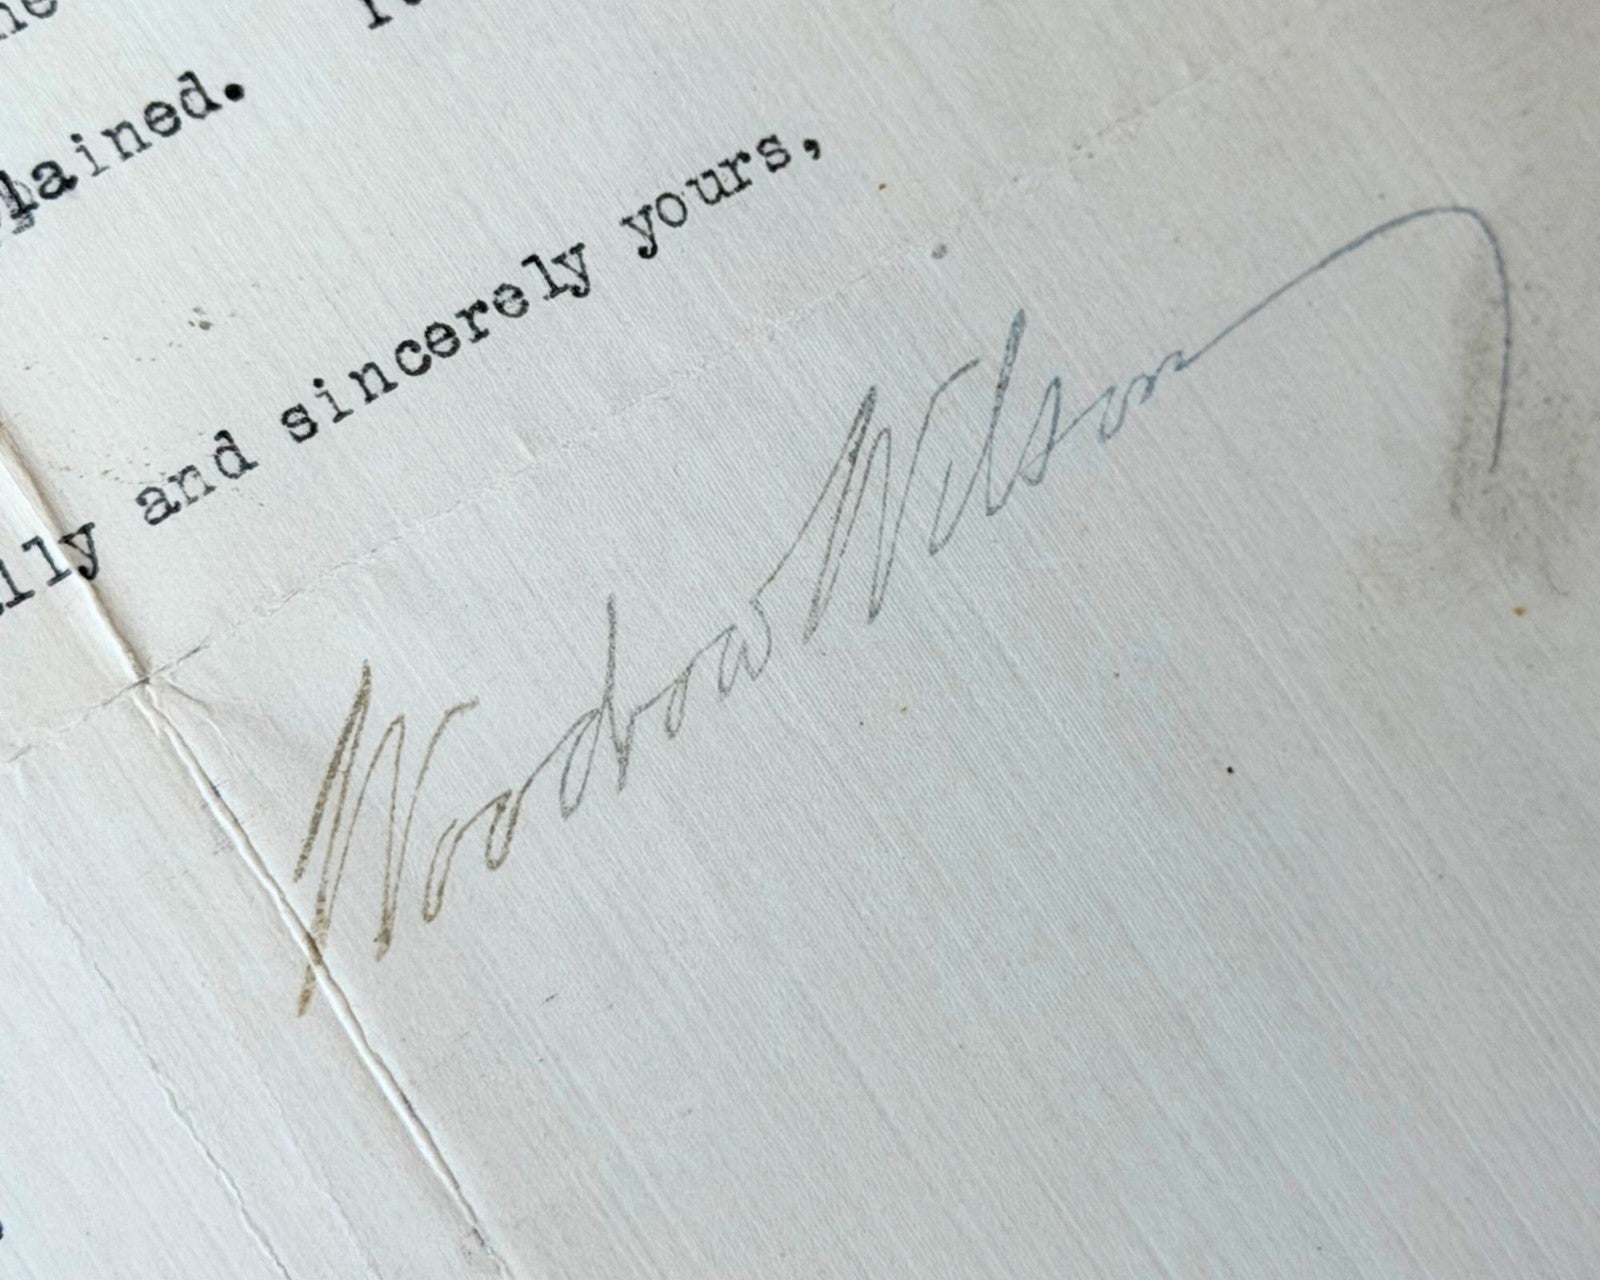 lained.
lly and sincerely yours,
Woodrow Wilson